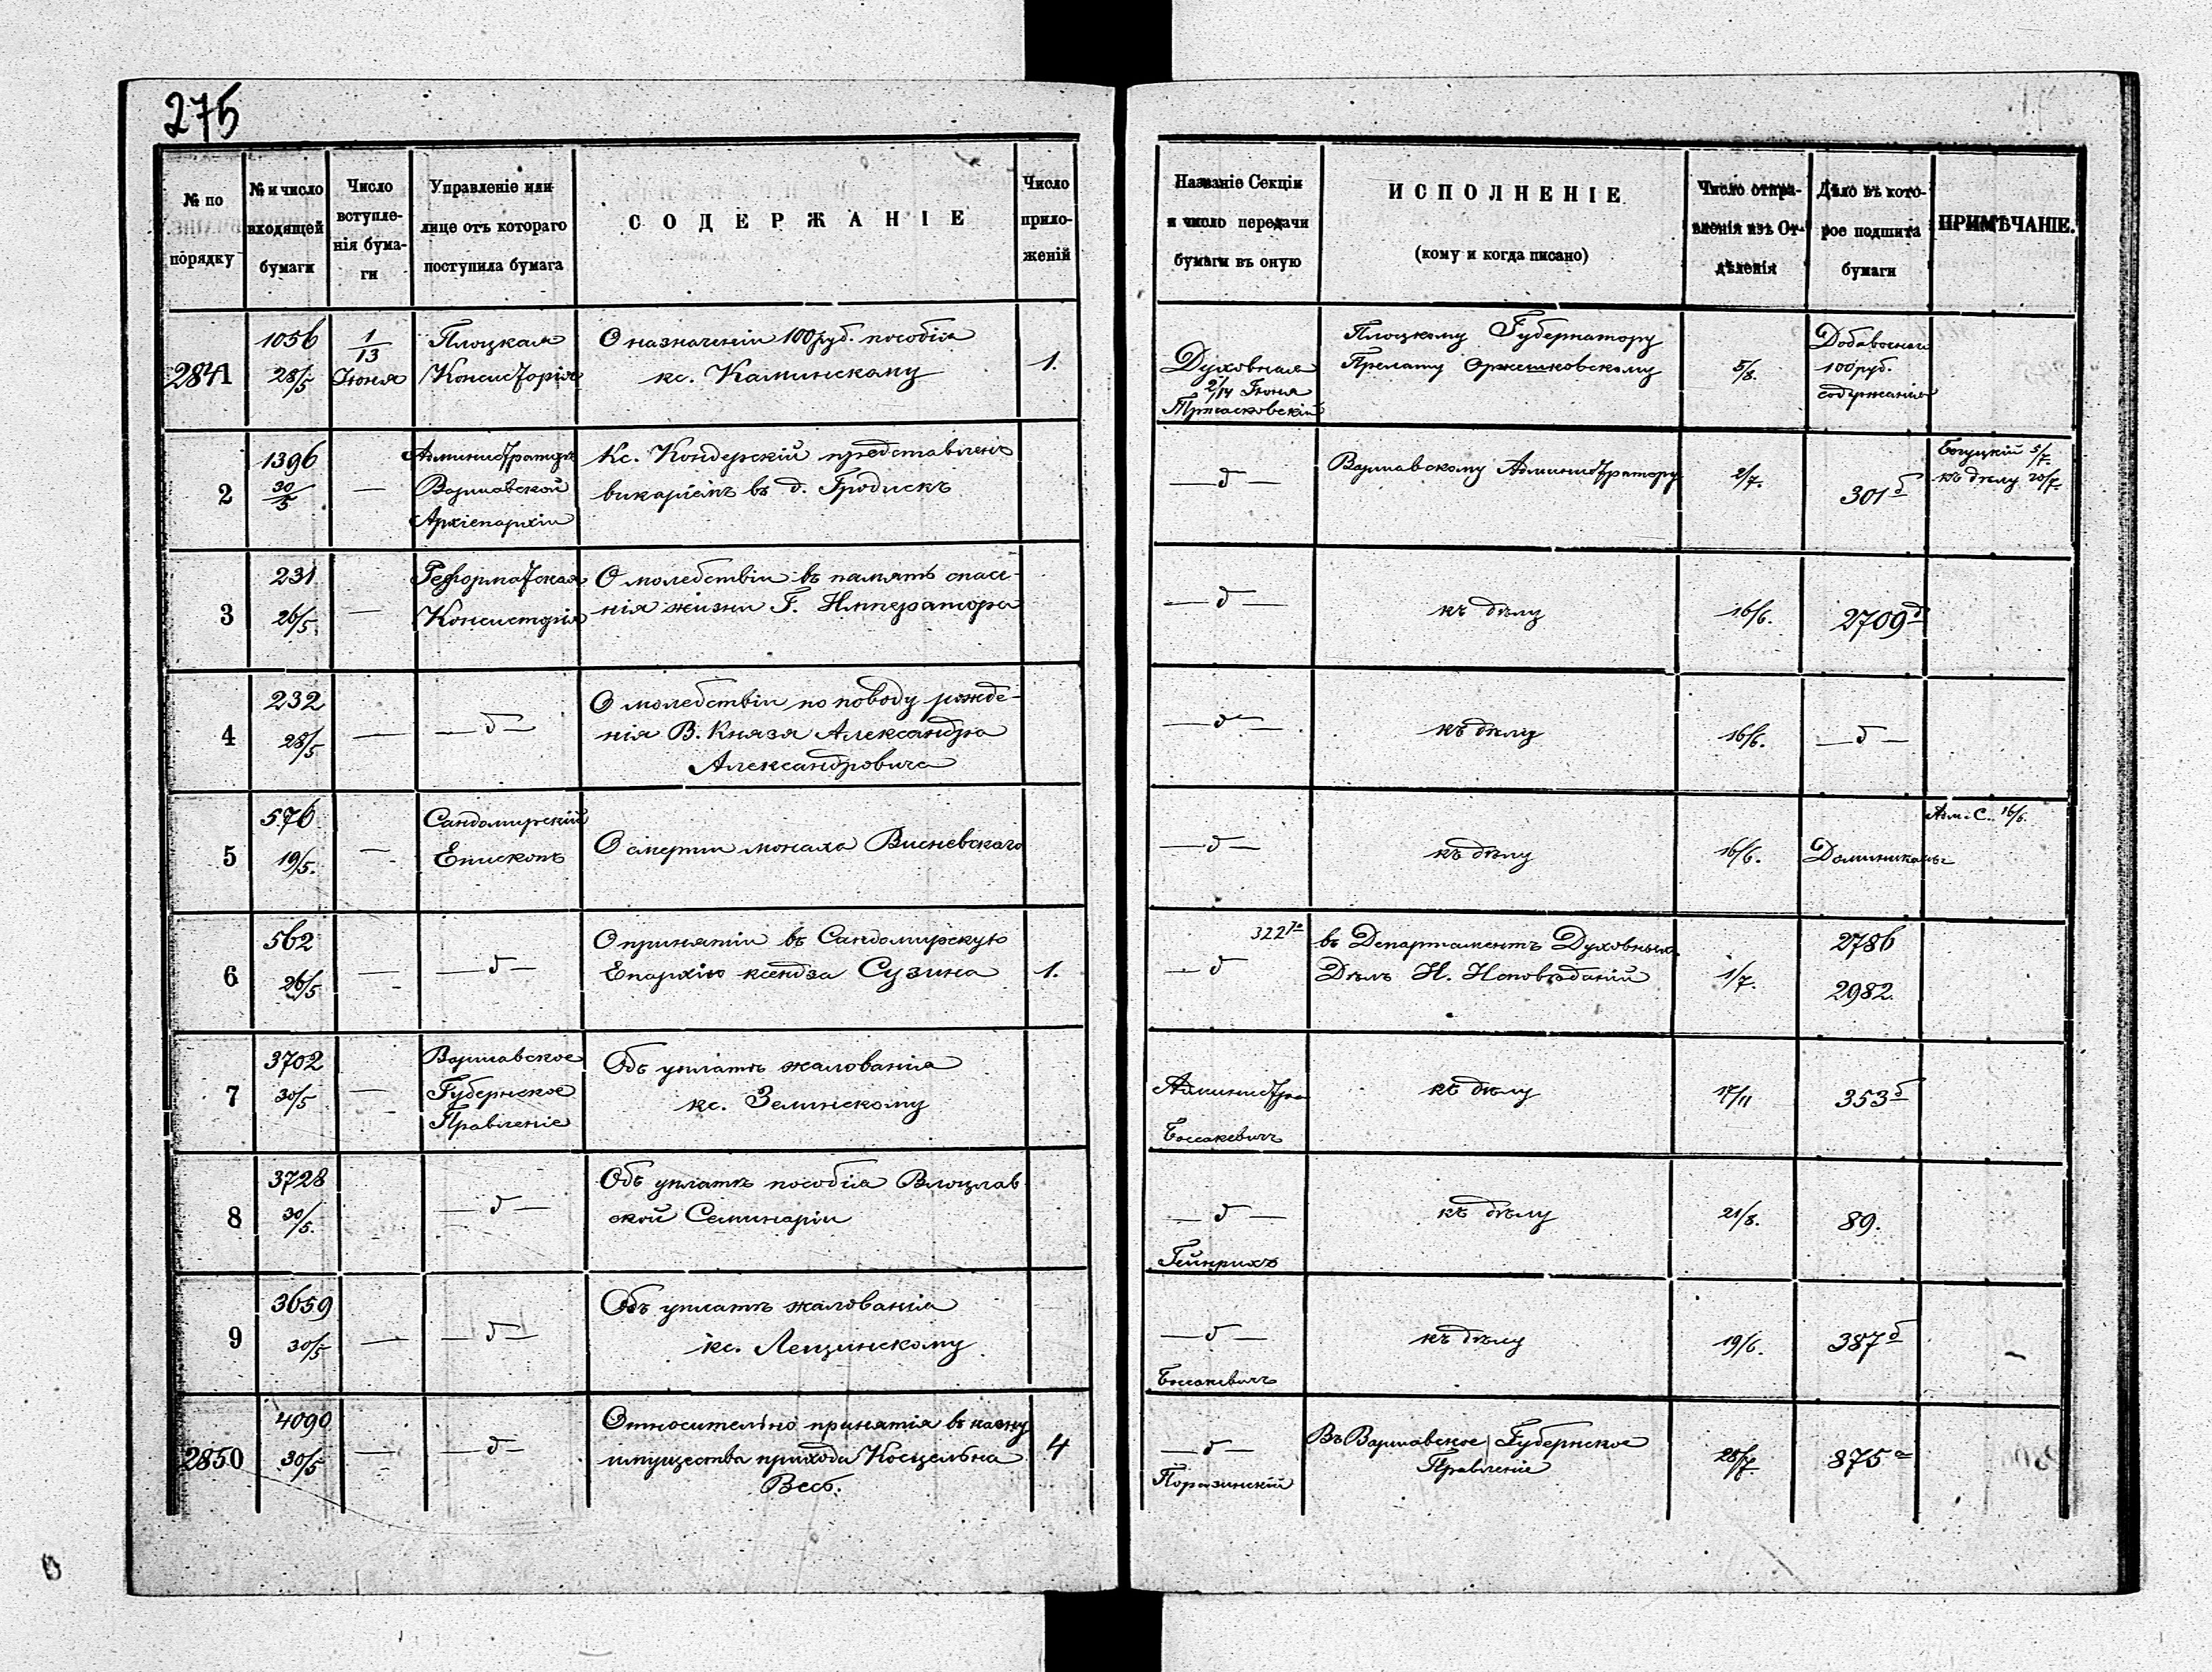 275
№ по порядку
№ и число входящей бумаги
Число вступле-нія бума-ги
Управленіе или лице отъ котораго поступила бумага
СОДЕРЖАНІЕ
Число прило-женій
Названіе Секціи и число передачи бумаги въ оную
ИСПОЛНЕНІЕ
(кому и когда писано)
Число отпра-вленія изъ От-дѣленія
Дѣло въ кото-рое подшита бумаги
ПРИМѢЧАНІЕ.
2841
1056
28/5
1/13
Іюня
Плоцкая
Консисторія
О назначеніи 100 руб. пособія
кс. Каминскому
1.
Духовная
2/14 Іюня
Плоцкому Губернатору
Прелату Оржешковскому
5/8.
Добавочнаго
100 руб.
содержанія
2
1396
30/5
—
Администраторъ
Варшавской
Архіепархіи
Кс. Кондерскій представленъ
викаріемъ въ д. Гродискъ
— д —
Варшавскому Администратору
2/7.
301 б
5/7.
къ дѣлу 20/7.
3
231
26/5
—
Реформатская
Консисторія
О молебствіи въ память спасе-
нія жизни Г. Императора
— д —
къ дѣлу
16/6.
2709 д
4
232
28/5
—
— д —
О молебствіи по поводу рожде-
нія В. Князя Александра
Александровича
— д —
къ дѣлу
16/6.
— д —
5
576
19/5.
—
Сандомирскій
Епископъ
О смерти монаха Висневскаго
— д —
къ дѣлу
16/6.
Доминиканы
Адм. С. 16/6.
6
562
26/5
—
— д —
О принятіи въ Сандомирскую
Епархію ксендза Сузина
1.
322
— д
въ Департаментъ Духовныхъ
Дѣлъ И. Исповѣданій
1/7.
2786
2982.
7
3702
30/5
—
Варшавское
Губернское
Правленіе
Объ уплатѣ жалованія
кс. Зелинскому
Администра
Боссакевичъ
къ дѣлу
17/11
353 б
8
3728
30/5.
— д —
Объ уплатѣ пособія Влоцлав
ской Семинаріи
— д —
Гейнрихъ
къ дѣлу
21/8.
89.
9
3659
30/5
—
— д —
Объ уплатѣ жалованія
кс. Лещинскому.
— д —
Боссакевичъ
къ дѣлу
19/6.
387 б
2850
4090
30/5
—
— д —
Относительно принятія въ казну
имущества прихода Косцельна
Весь.
4
— д —
Поразинскій
Въ Варшавское Губернское
Правленіе
28/7.
875 а